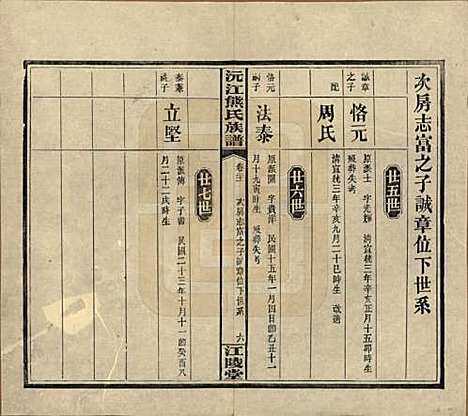 次房志富之子誠章位下世系
廿五世
誠章之子
恪元
原派士 字光輝 清宣統三年辛亥正月十五卯時生
歿葬失考
周氏
清宣統三年辛亥九月二十巳時生 改適
廿六世
恪元嗣子
法泰
原派開 字貴洋 民國十五年一月四日即乙丑十一
月十九寅時生 歿葬失考
沅江熊氏族譜
卷廿
次房志富之子誠章位下世系
六
江陵堂
廿七世
泰兼祧子
立堅
原派傳 字子書 民國二十三年十月十一即癸酉八
月二十二戌時生